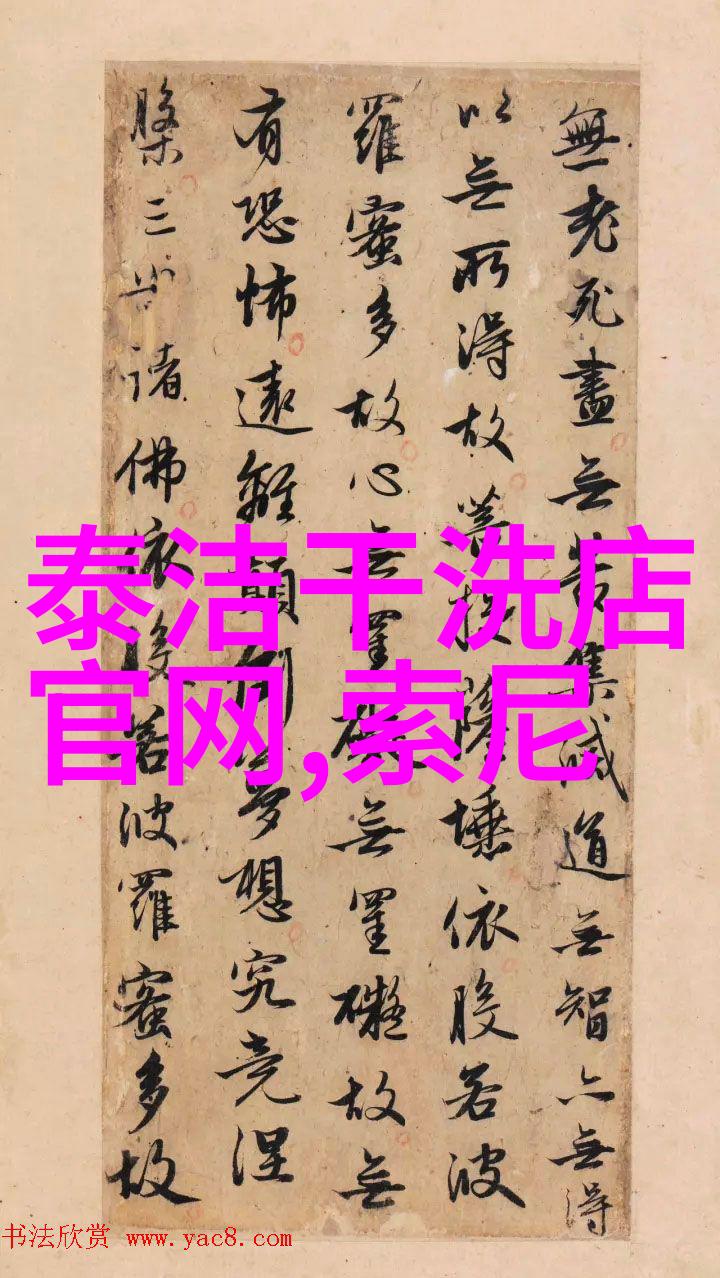 無老死盡無苦集滅道無智亦無得
以無所得故菩提薩埵依般若波
羅蜜多故心無罣礙無罣礙故無
有恐怖遠離顛倒夢想究竟涅
槃三世諸佛依般若波羅蜜多故
泰洁干洗店
官网,索尼
书法欣赏 www.yac8.com